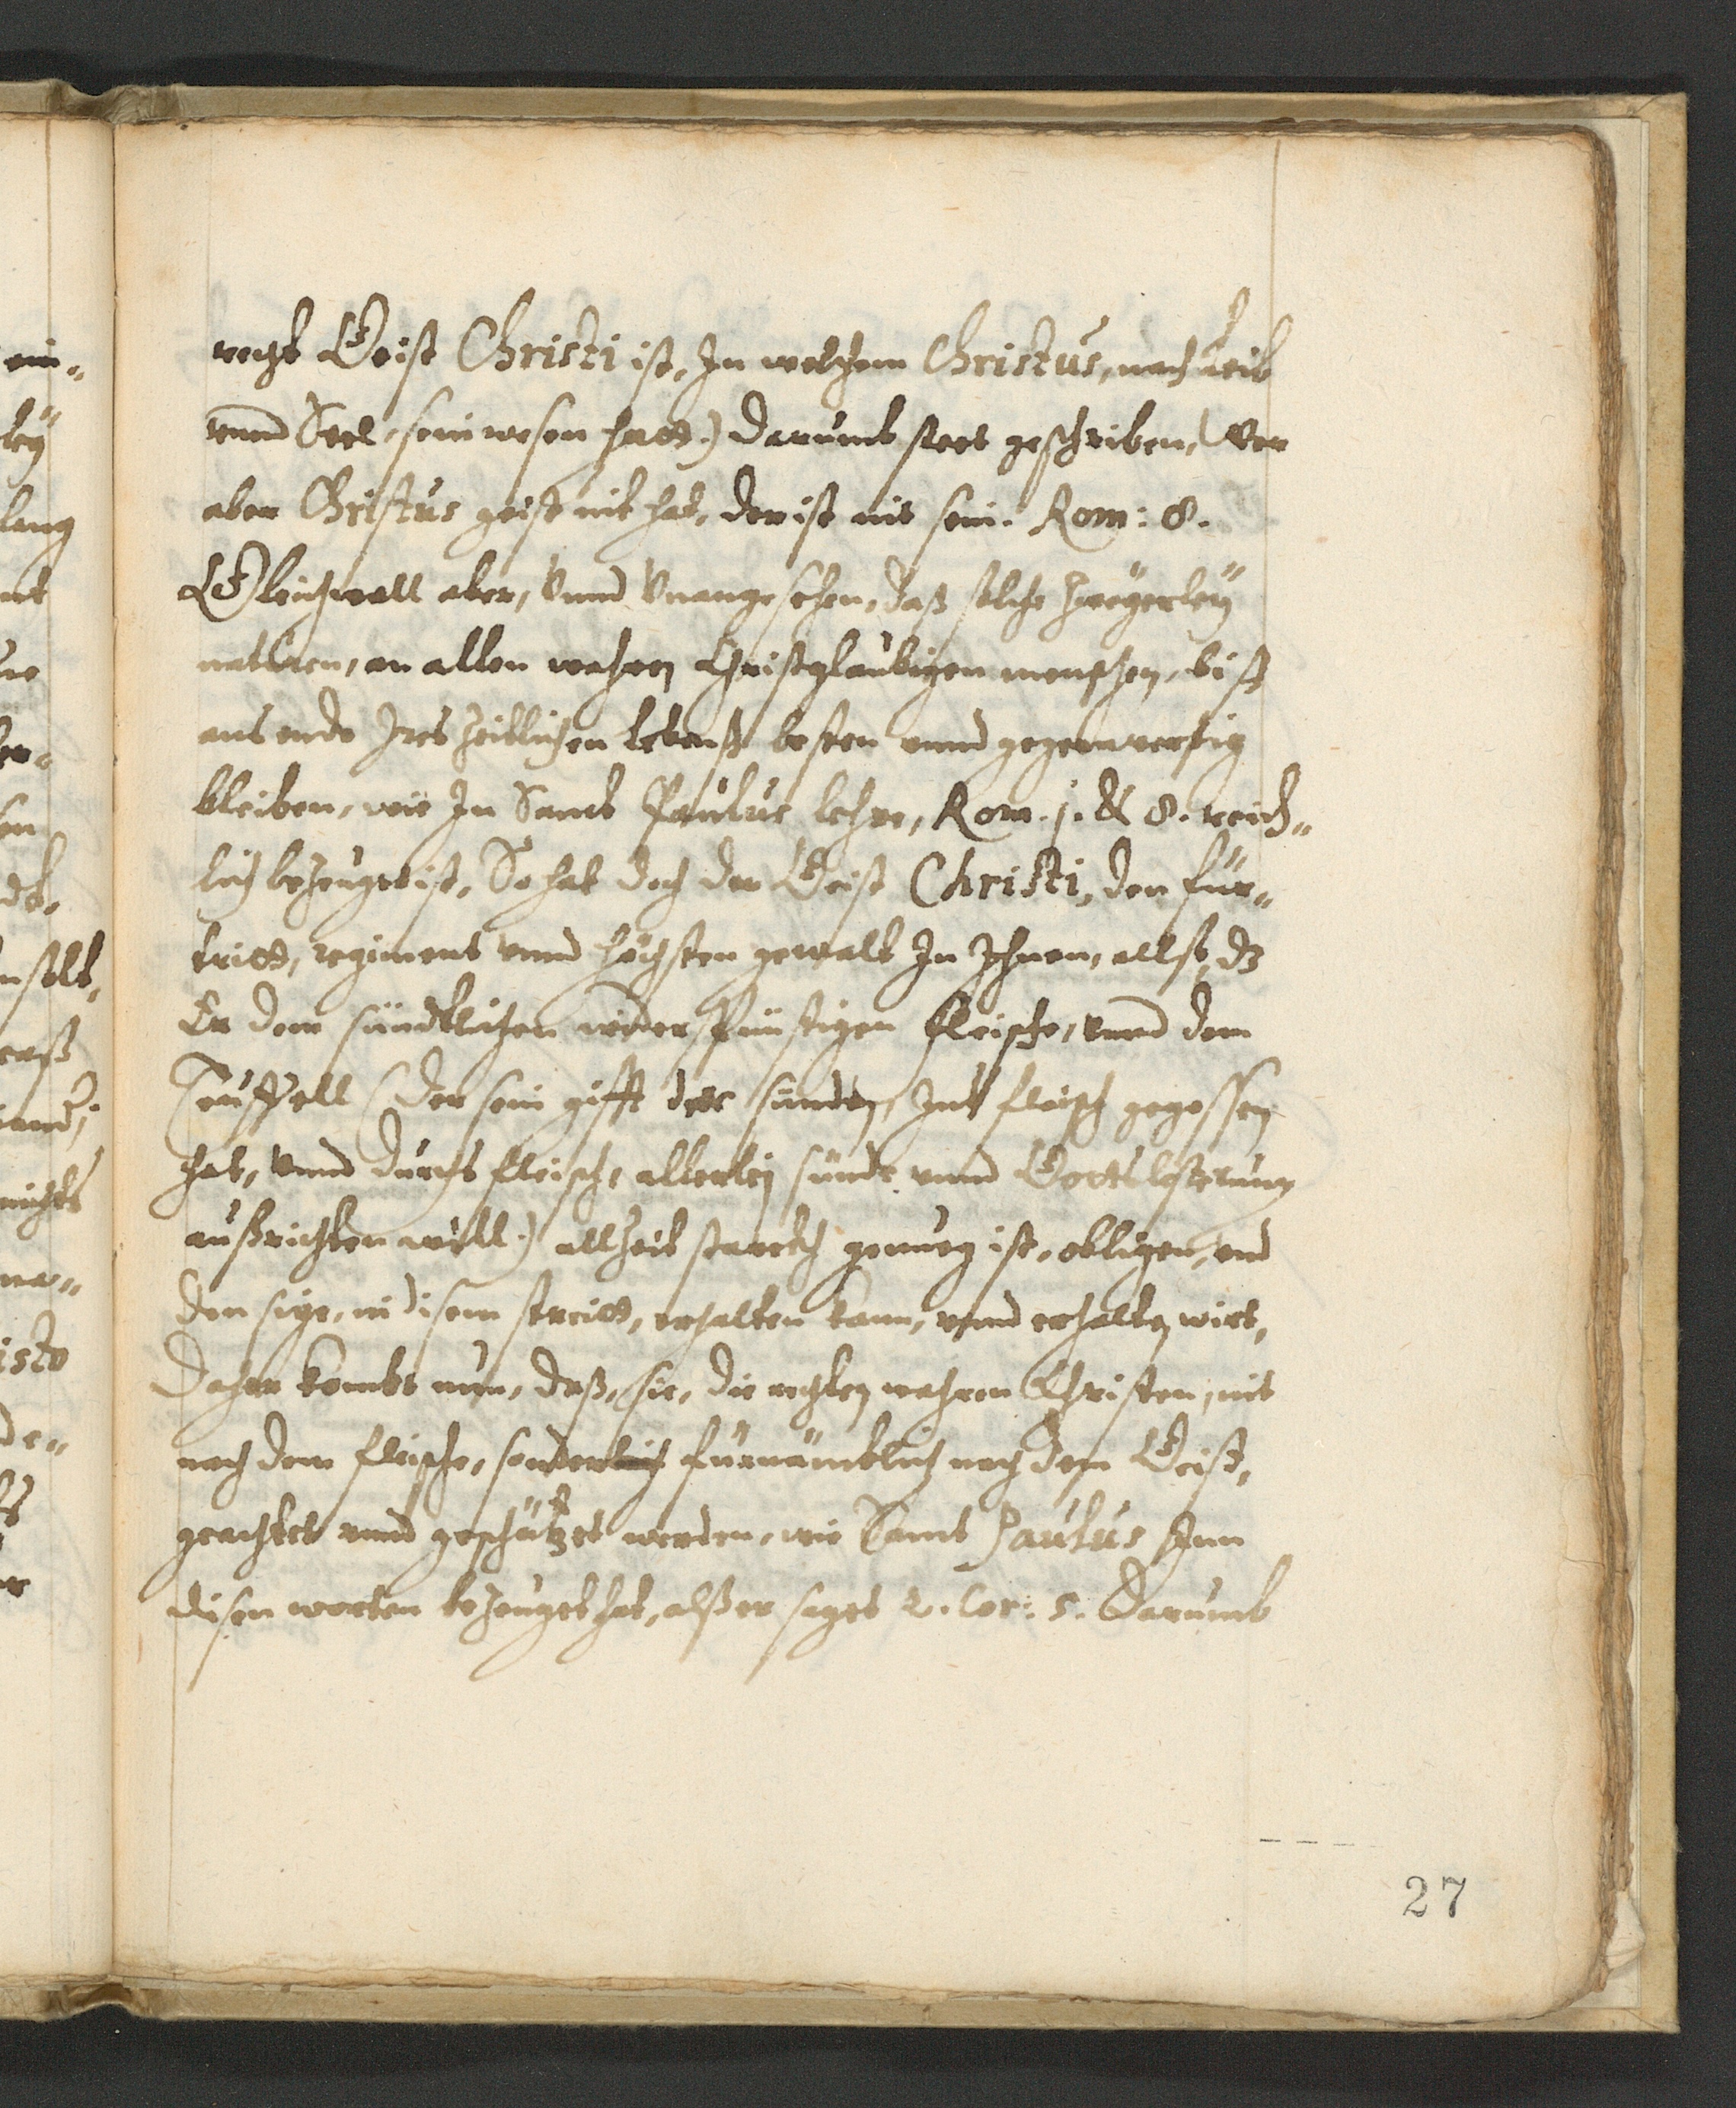 recht Geist Christi ist, In welchem Christus, nach Leib
vnnd Seel, sein wesen hatt.) darumb steet geschriben, Wer
aber Christus geist nit hat, der ist nit sein. Rom: 8.
Gleichwoll aber, Vnnd Vnangesehen, daß solche zweÿerleÿ
naturen, an allen wahren Christglaubigen menschen, biß
ans ende Jres zeitlichen lebenß besten vnnd gegenwertig
bleiben, wie In Sanct Paulus lehre, Rom. j. & 8. reich„
lich bezeuget ist, So hat doch der Geist Christi, den für„
tritt, regiment vnnd höchsten gewalt In Ihnen, allso, dz
Er dem sündtlichen widerspünstigen fleische, vnnd dem
Teuffell (der sein gifft der sünden, Ins fleisch gegossen
hat, Vnnd durchs fleisch, allerleÿ sünde vnnd Gottslesterung
außrichten will.) allzeit starckh genueg ist, obligen, vnd
den sige, in disem streitt, erhalten kann, vnnd erhalten wirt,
Daher kombt nun, daß, sie, die rechten wahren Christen, nit
nach dem fleische, sonder fürnämblich nach dem Geist,
geachtet vnnd geschätzet werden, wie Sanct Paulus Inn
disen worten bezeuget hat, alß er saget 2. Cor: 5. Darumb
27
ein„
leÿ
lang
isto
de„
nichts